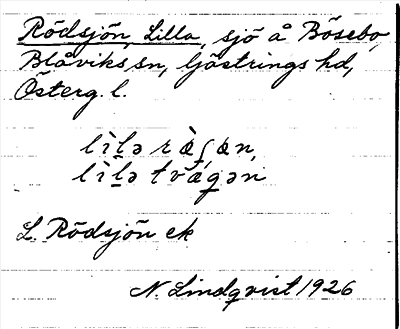 Rödsjön, Lilla, sjö å Bösebo,
Blåviks sn, Göstrings hd,
Österg. l.
lìlə
lìlə
L. Rödsjön ek
N. Lindqvist 1926